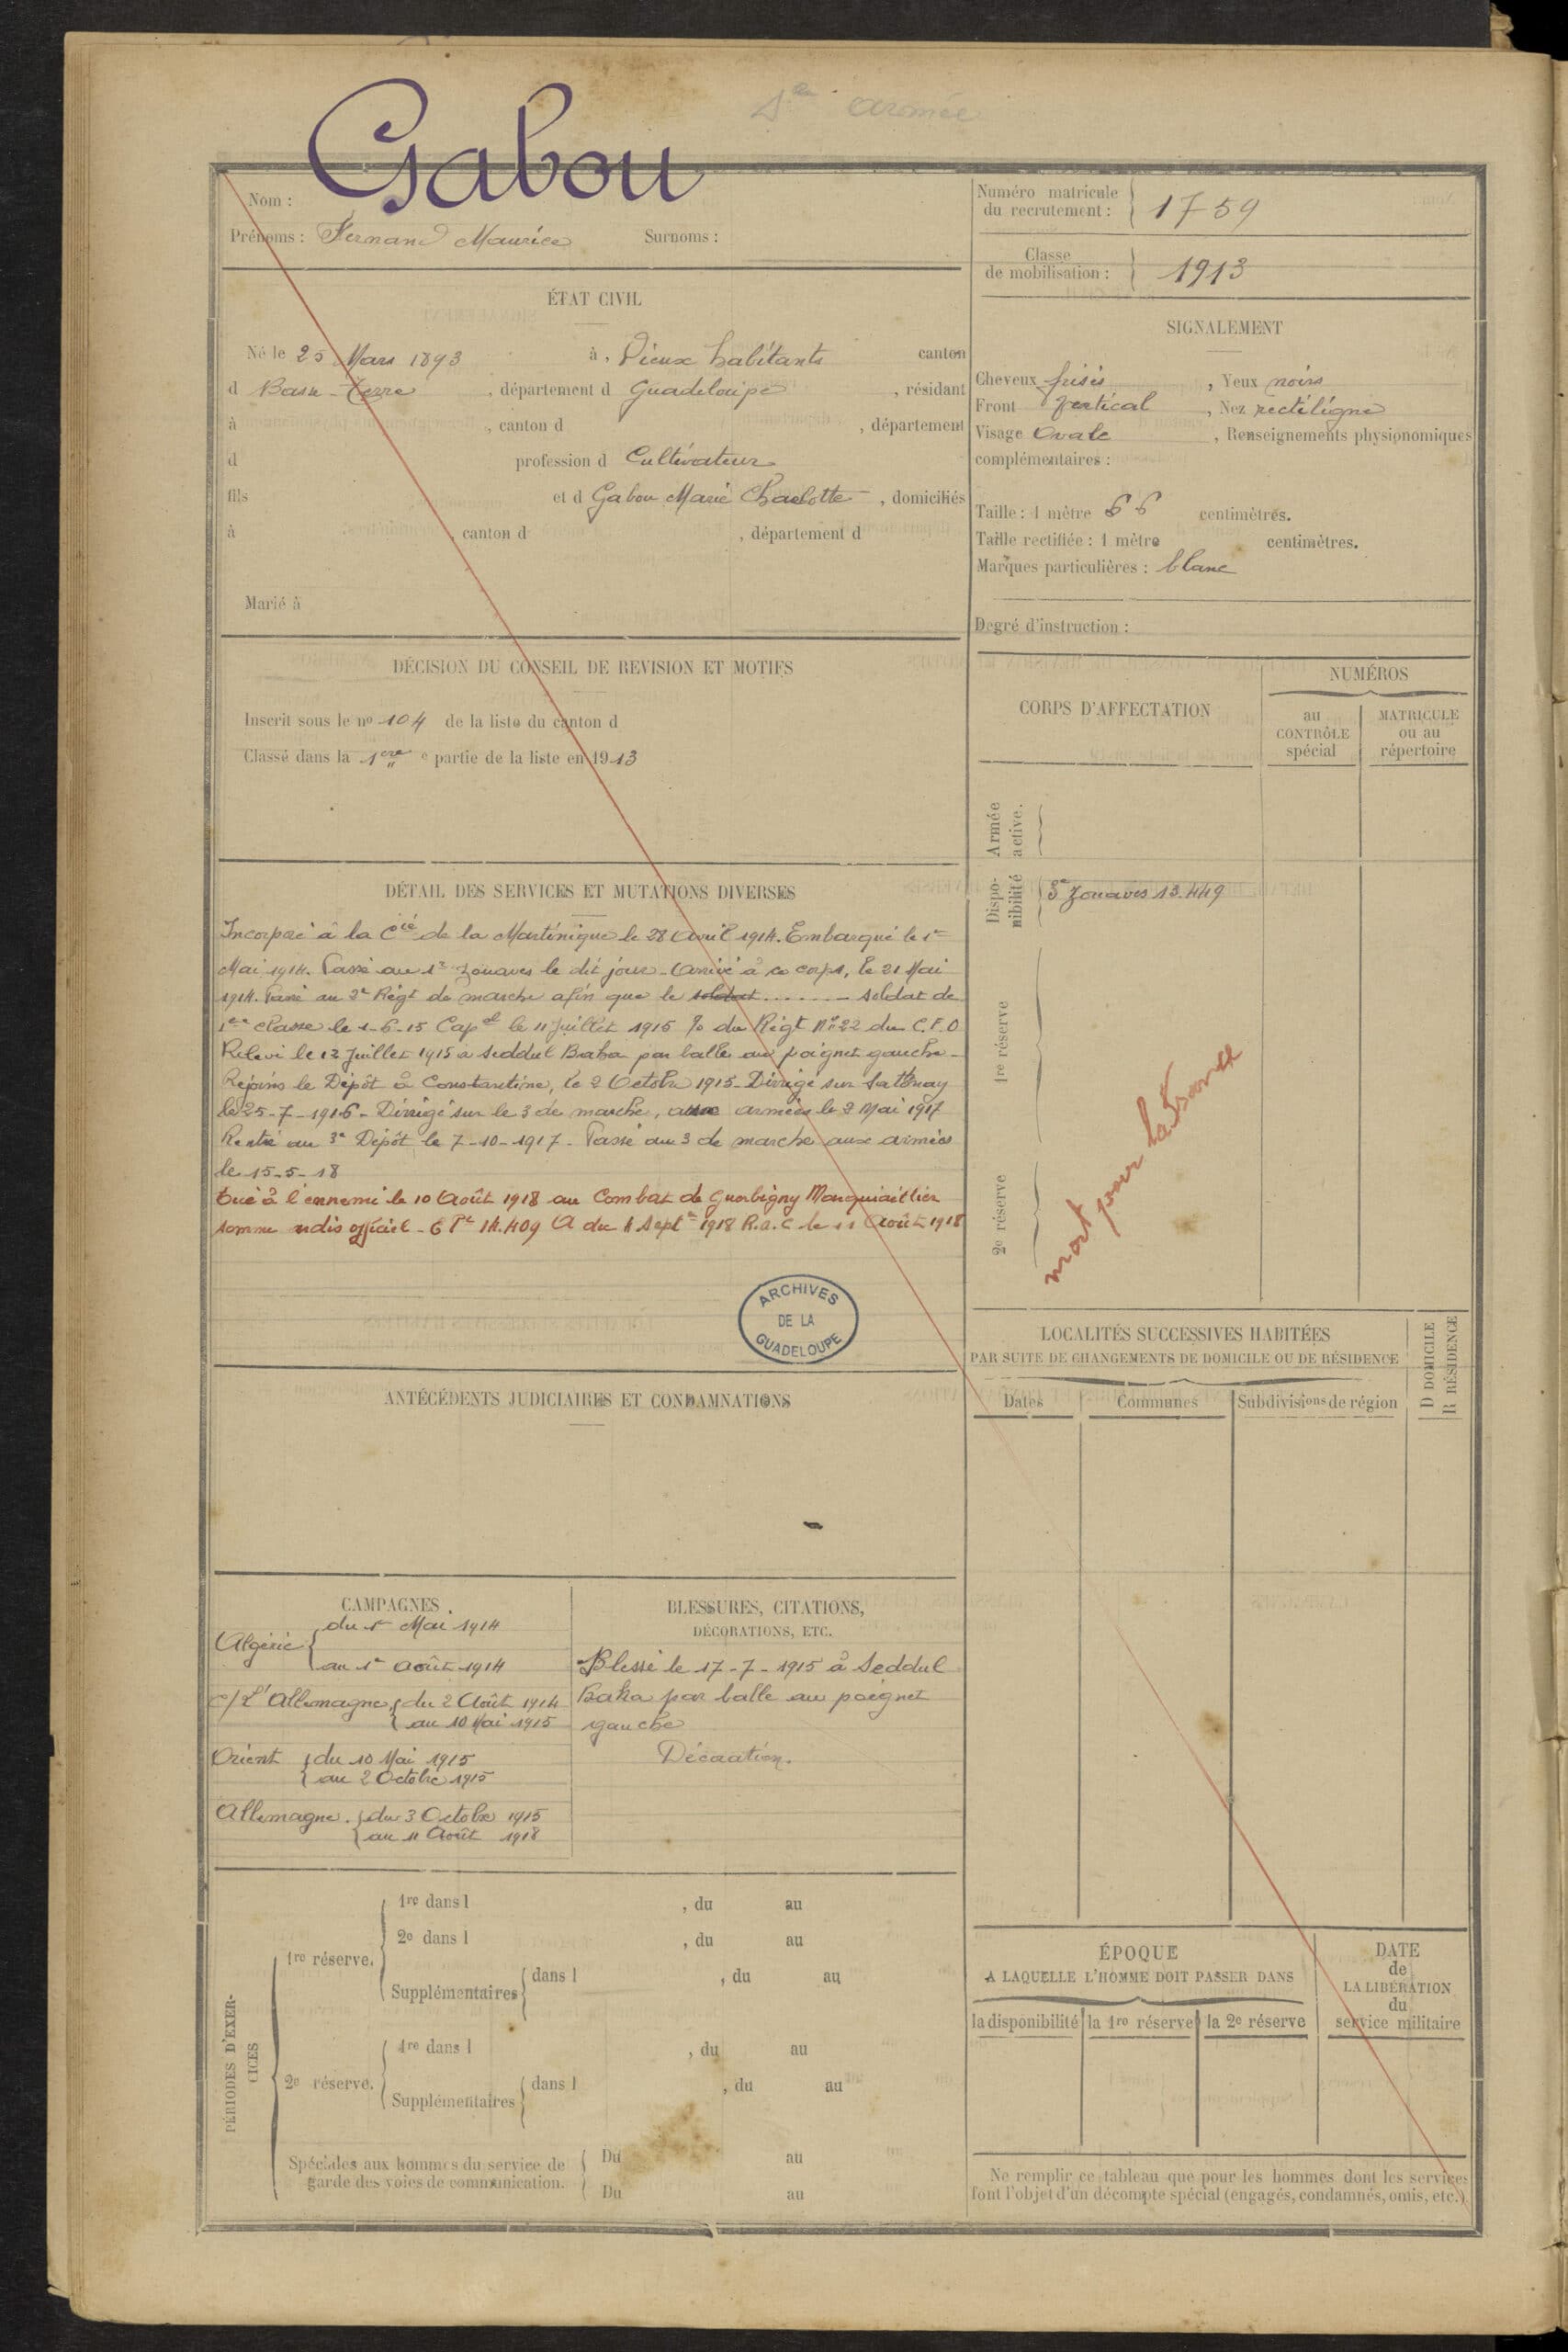 Sn armée
Gabou
Nom :
Prénoms : Fernand Maurice Surnoms :
Numéro matricule
du recrutement : 1759
Classe
de mobilisation : 1913
ÉTAT CIVIL
Né le 25 Mars 1893 à, Vieux habitants canton
d Basse-Terre, département d Guadeloupe, résidant
à , canton d , département
d profession d Cultivateur
fils et d Gabou Marie Charlotte, domiciliés
à , canton d , département d
Marié à
SIGNALEMENT
Cheveux frisés, Yeux noirs
Front Vertical, Nez rectiligne
Visage Ovale, Renseignements physionomiques
complémentaires :
Taille : 1 mètre 66 centimètres.
Taille rectifiée : 1 mètre centimètres.
Marques particulières : blanc
Degré d'instruction :
DÉCISION DU CONSEIL DE REVISION ET MOTIFS
Inscrit sous le no 104 de la liste du canton d
Classé dans la 1ere e partie de la liste en 1913
CORPS D'AFFECTATION
NUMÉROS
au
CONTRÔLE
spécial
MATRICULE
ou au
répertoire
Armée
active.
Dispo-
nibilité
3e Zouaves 13.449
1re réserve
2e réserve
mort pour la France
DÉTAIL DES SERVICES ET MUTATIONS DIVERSES
Incorporé à la Cie de la Martinique le 28 Avril 1914. Embarqué le 1er
Mai 1914. Passé au 1er Zouaves le dit jour. Arrivé à ce corps, le 21 Mai
1914. Passé au 2e Régt de marche afin que le soldat ....... soldat de
1ere classe le 1-6-15 Capal le 11 Juillet 1915 % du Régt No 22 du C.E.O
Relevé le 12 Juillet 1915 à Seddul Baha par balle au poignet gauche.
Rejoins le Dépôt à Constantine, le 2 Octobre 1915. Dirigé sur Sathonay
le 25-7-1916. Dirigé sur le 3 de marche, aux armées le 3 Mai 1917
Rentré au 3e Dépôt le 7-10-1917. Passé au 3 de marche aux armées
le 15-5-18
tué à l'ennemi le 10 Août 1918 au Combat de Guerbigny
Somme officiel 14.409 A du 4 Septe 1918 R.a.C le 11 Août 1918
ARCHIVES
DE LA
GUADELOUPE
LOCALITÉS SUCCESSIVES HABITÉES
PAR SUITE DE CHANGEMENTS DE DOMICILE OU DE RÉSIDENCE
D DOMICILE
R RÉSIDENCE
Dates
Communes
Subdivisions de région
ANTÉCÉDENTS JUDICIAIRES ET CONDAMNATIONS
CAMPAGNES
Algérie { du 1er Mai 1914
au 1er Août 1914
c/ L'Allemagne { du 2 Août 1914
au 10 Mai 1915
Orient { du 10 Mai 1915
au 2 Octobre 1915
Allemagne. { du 3 Octobre 1915
au 11 Août 1918
BLESSURES, CITATIONS,
DÉCORATIONS, ETC.
Blessé le 17-7-1915 à Seddul
Baha par balle au poignet
gauche
Décoration.
PÉRIODES D'EXER-
CICES
1re réserve.
1re dans l , du au
2e dans l , du au
Supplémentaires { dans l , du au
2e réserve.
1re dans l , du au
Supplémentaires { dans l , du au
Spéciales aux hommes du service de
garde des voies de communication.
Du au
Du au
ÉPOQUE
A LAQUELLE L'HOMME DOIT PASSER DANS
la disponibilité
la 1re réserve
la 2e réserve
DATE
de
LA LIBÉRATION
du
service militaire
Ne remplir ce tableau que pour les hommes dont les services
font l'objet d'un décompte spécial (engagés, condamnés, omis, etc.)